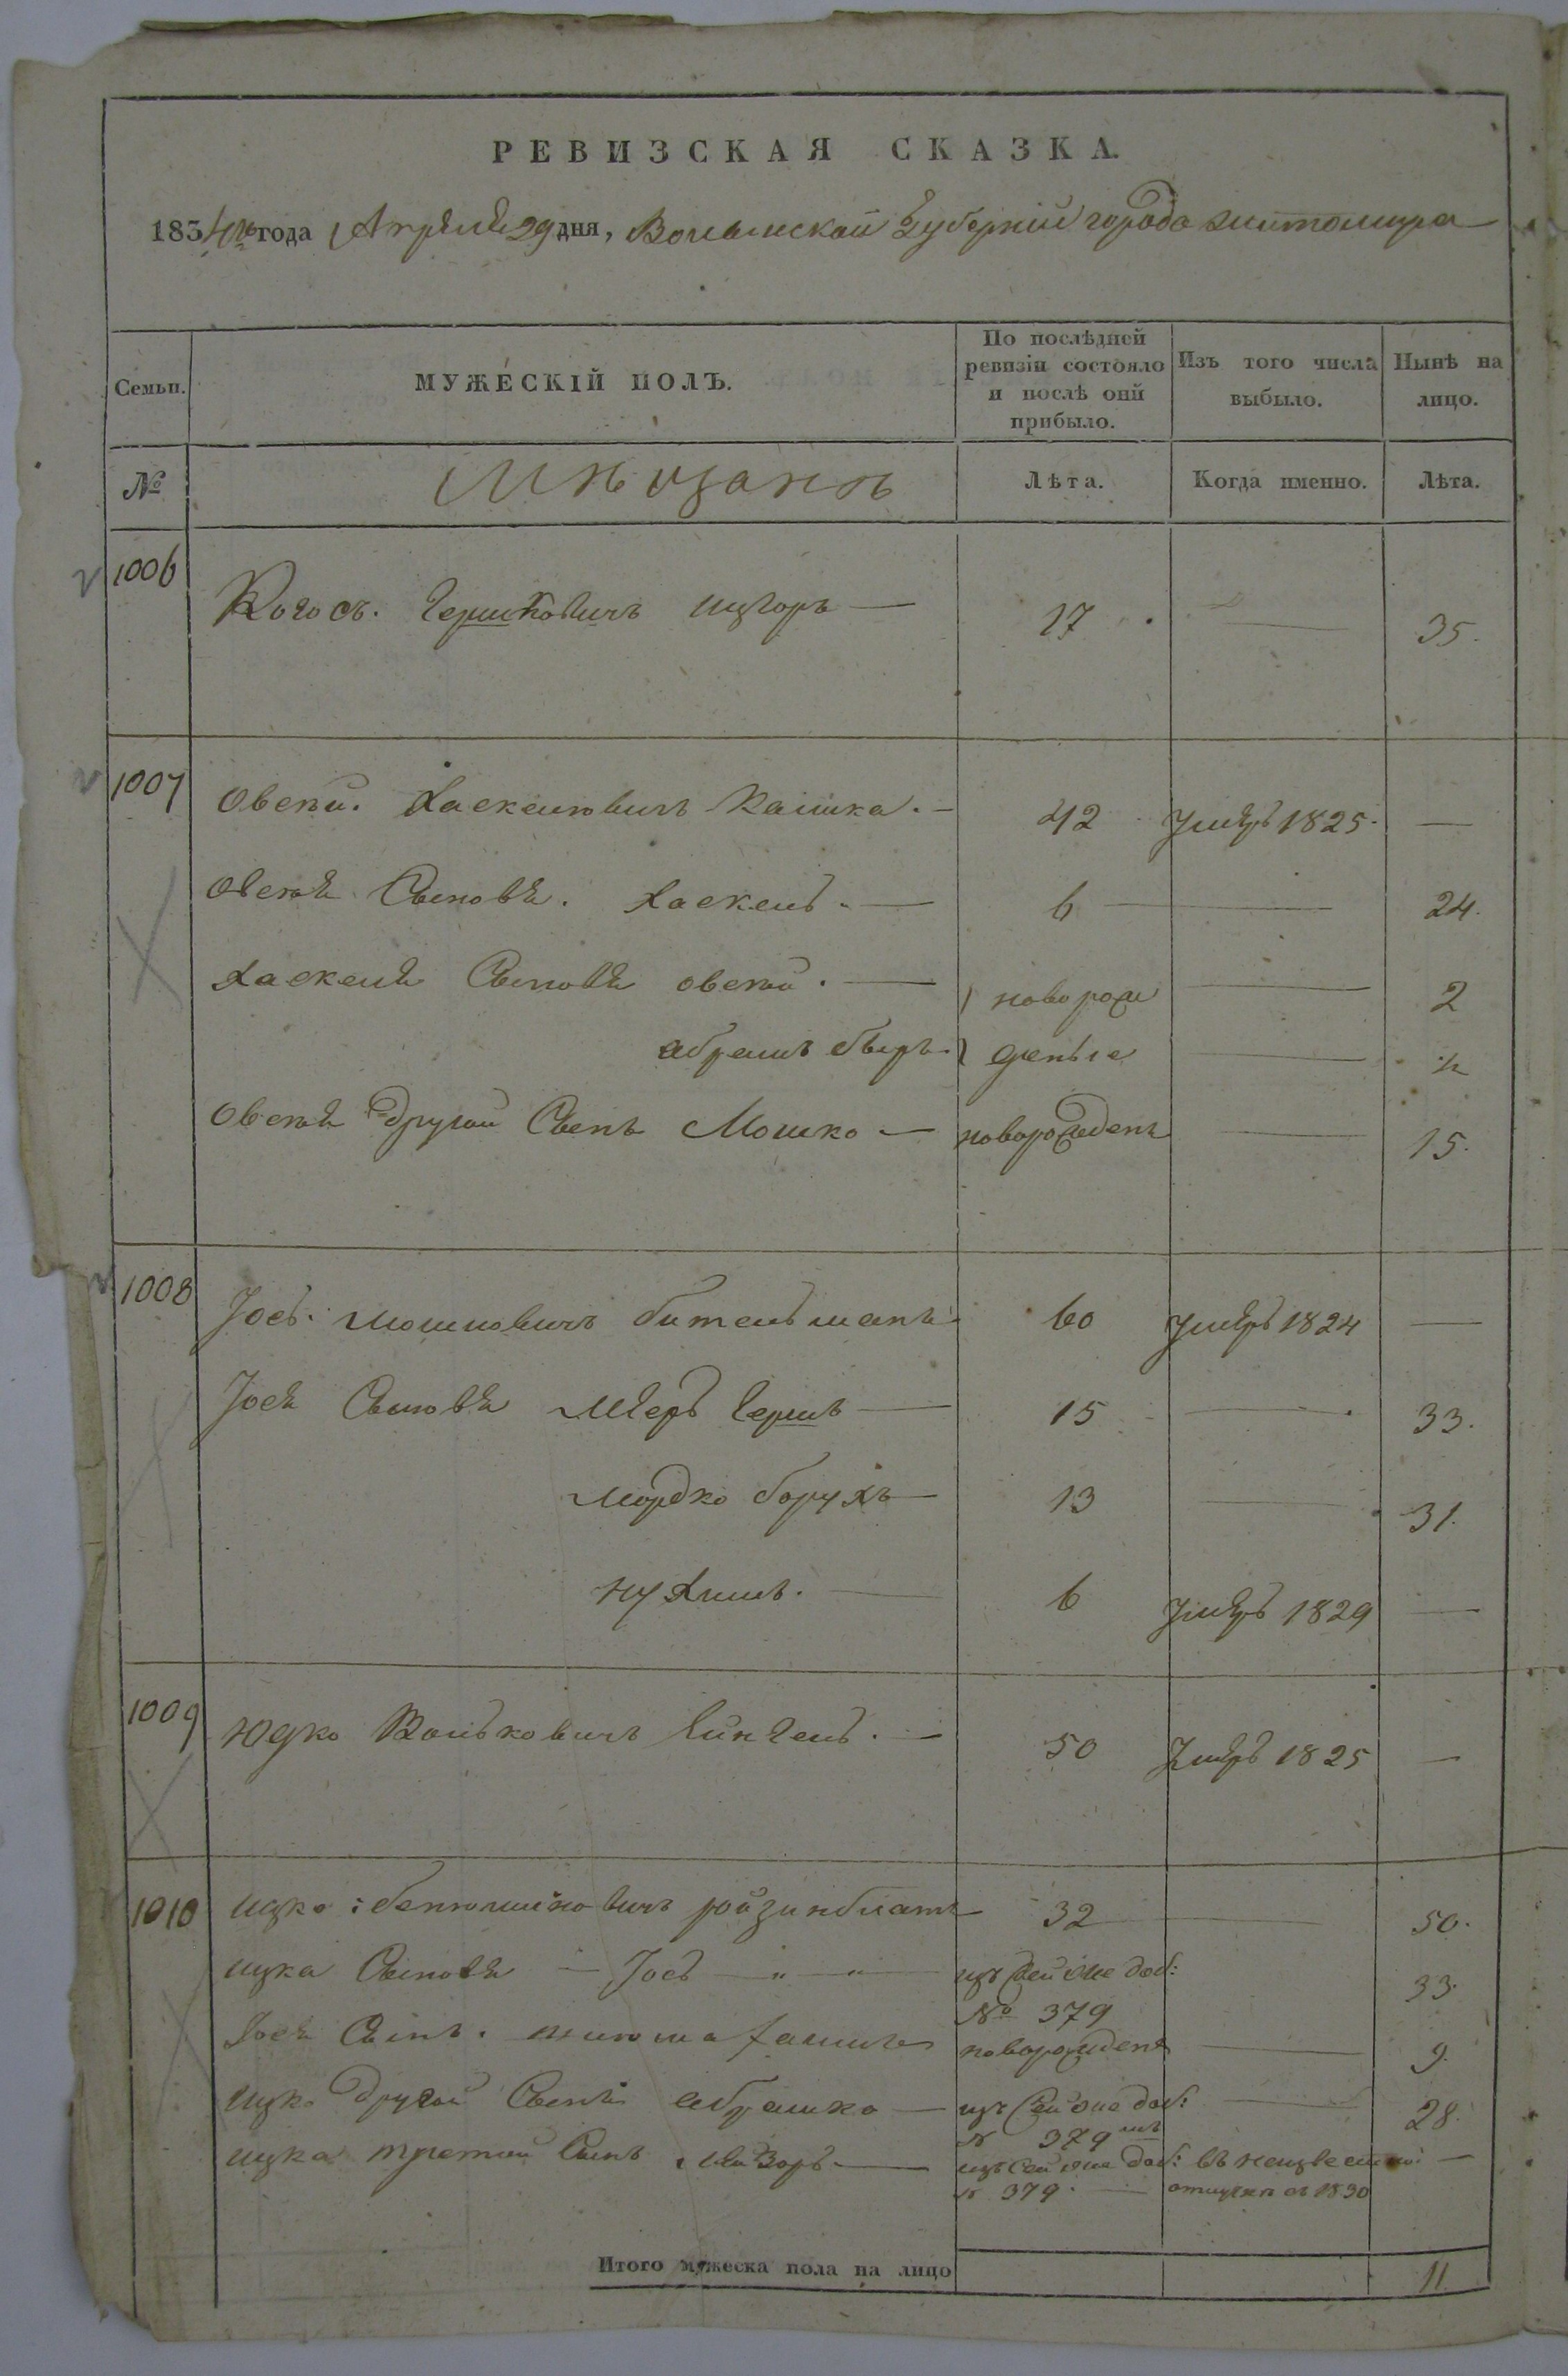 РЕВИЗСКАЯ СКАЗКА.
1834го года Апреля 29 дня, Волынской Губерніи города Житомира
Семьи.
МУЖЕСКІЙ ПОЛЪ.
По послѣдней ревизіи состояло и послѣ оній прибыло.
Изъ того числа выбыло.
Нынѣ на лицо.
№
Мѣщанъ
Лѣта.
Когда именно.
Лѣта.
1006
Гершковичъ — 17 — 35.
1007
Овсѣй. Хаскелювичъ Кашка. — 42 умеръ 1825. —
Овсѣя Сыновья. Хаскель. — 6 — 24.
Хаскеля Сыновья Овсѣй. — новорож 2
абрамъ беръ. деные ½
Овсѣя другой Сынъ Мошко — новорожденъ — 15.
1008
Іось. Мошковичъ бительманъ 60 умеръ 1824 —
Іося Сыновья Мееръ Гершъ — 15 — 33.
Мордко борухъ — 13 — 31.
Нухимъ. — 6 умеръ 1829 —
1009
Юдко Вольковичъ — 50 умеръ 1825 —
1010
ицко: ройзинблатъ 32 — 50.
ицка Сыновья — Іось — " — " — изъ сей же доб: № 379 33.
Іося Сынъ. новорожденъ — 9.
ицка другой Сынъ абрамко — изъ сей же доб: № 379мъ — 28.
ицка третій Сынъ Лейзоръ. — изъ сей же доб: № 379. — въ неизвестной отлучке съ 1830 —
Итого мужеска пола на лицо 11